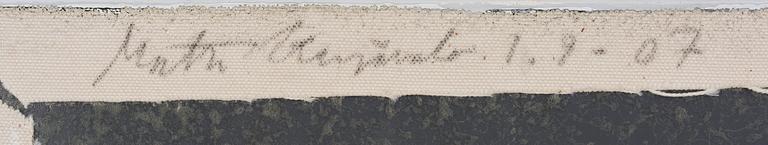 Matti Kujasalo. 1.9-07